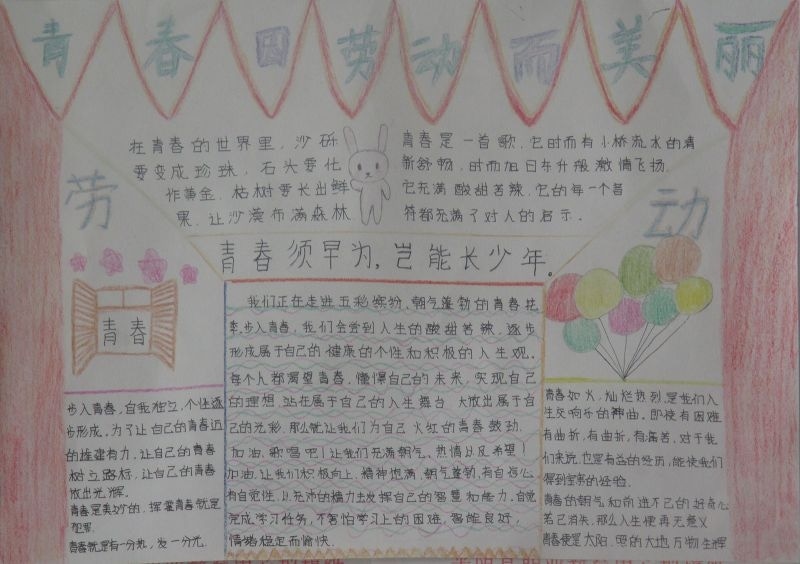 青春因劳动而美丽
在青春的世界里，沙砾
要变成珍珠，石头要化
作黄金，枯树要长出鲜
果，让沙漠布满森林
青春是一首歌，它时而有小桥流水的清
新舒畅，时而如日东升般激情飞扬
它充满酸甜苦辣，它的每一个音
符都充满了对人的启示。
劳
动
青春须早为，岂能长少年。
青春
我们正在走进五彩缤纷、朝气蓬勃的青春花
季，步入青春，我们会尝到人生的酸甜苦辣，逐步
形成属于自己的健康的个性和积极的人生观。
每个人都渴望青春，憧憬自己的未来，实现自己
的理想，站在属于自己的人生舞台，大放出属于自
己的光彩，那么就让我们为自己火红的青春鼓劲
加油，歌唱吧！让我们充满朝气、热情以及希望！
加油，让我们积极向上，精神饱满，朝气蓬勃，有自信心
有自觉性，以充沛的精力去发挥自己的智慧和能力，自觉
完成学习任务，不害怕学习上的困难，智能良好，
情绪稳定而愉快。
步入青春，自我独立，个性逐
步形成，为了让自己的青春迈
的有力，让自己的青春
树立路标，让自己的青春
放出光辉。
青春是美妙的，挥霍青春就是
犯罪
青春就是有一分热，发一分光
青春如火，灿烂热烈，是我们人
生交响乐的神曲。即使有困难
有曲折，有曲折，有痛苦，对于我
们来说，也是有益的经历，能使我们
得到宝贵的经验
青春的朝气和前进不已的好奇心
若已消失，那么人生便再无意义
青春便是太阳，照的大地万物生辉